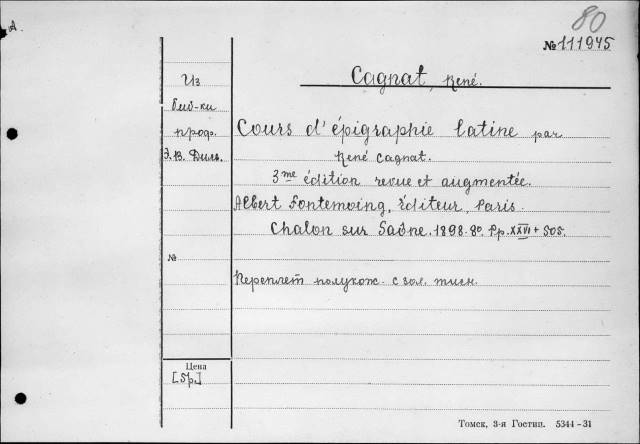 80
А.
№ 111945
Cagnat, René.
Из
биб-ки
проф.
Э.В. Диль.
Cours d'épigraphie latine par
René Cagnat.
3me édition revue et augmentée.
Albert Fontemoing, Éditeur, Paris.
Chalon sur Saône. 1898. 8o. Pp. XXVI + 505.
№
Переплет полукож. с зол. тисн.
Цена
[5р.]
Томск, 3-я Гостип. 5344-31